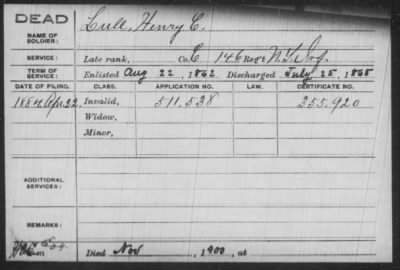 DEAD
NAME OF SOLDIER: Lull, Henry C.
SERVICE: Late rank, Co. C 146 Reg't N.Y. Inf.
TERM OF SERVICE: Enlisted Aug 22, 1862 Discharged July 25, 1865
DATE OF FILING. CLASS. APPLICATION NO. LAW. CERTIFICATE NO.
1884 Apr. 22. Invalid, 511,538 255,920
Widow,
Minor,
ADDITIONAL SERVICES:
REMARKS:
Died Nov , 1900, at